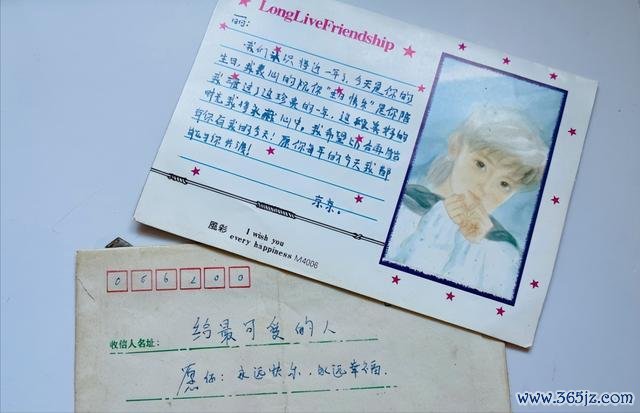 LongLiveFriendship
丽:
我们认识将近一年了,今天是你的
生日,我衷心的祝你"生日快乐"是你陪
我度过了这珍贵的一年,这段美好的
时光我将永藏心中,我希望以后再
年你有我的今天!愿你每年的今天我都
风彩
I wish you
every happiness M4006
066200
收信人名址:
给最可爱的人
愿你:永远快乐,永远幸福.
www.365jz.com